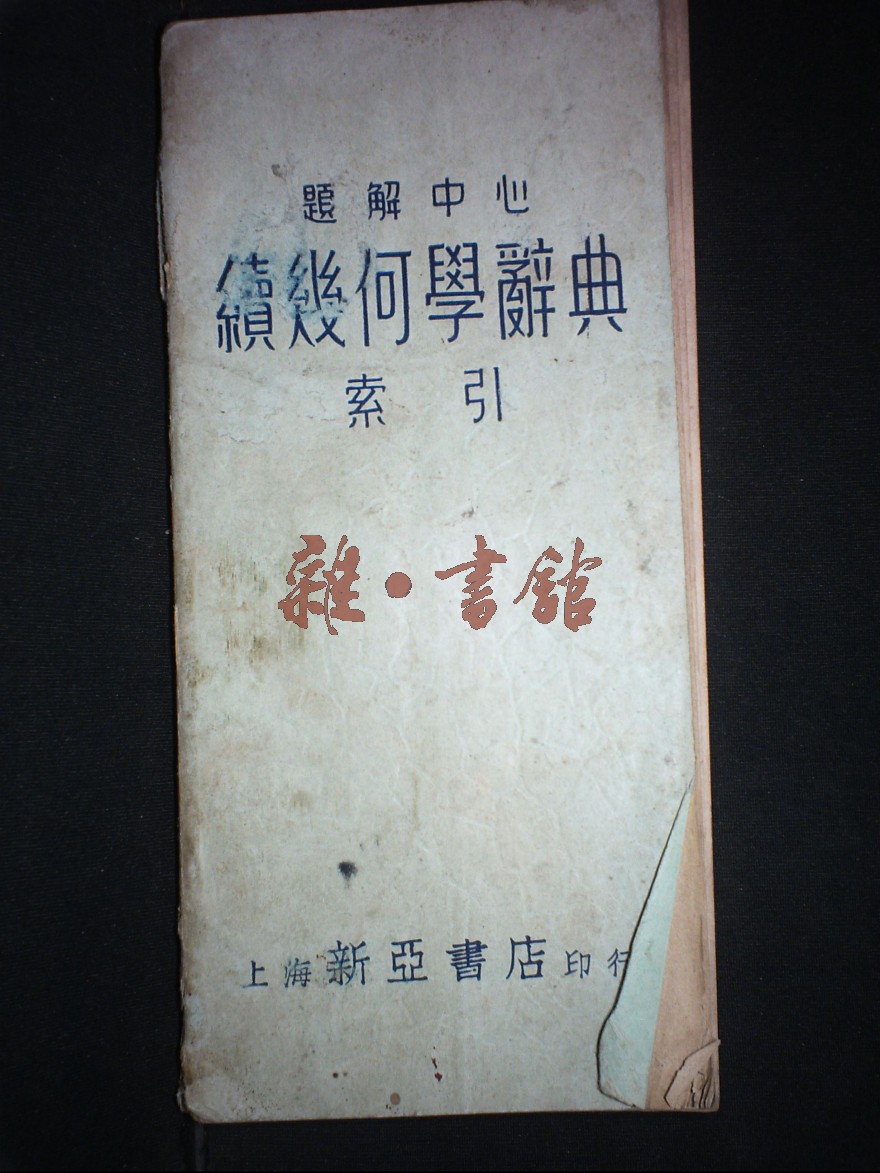 題解中心
續幾何學辭典
索引
雜•書館
上海新亞書店印行